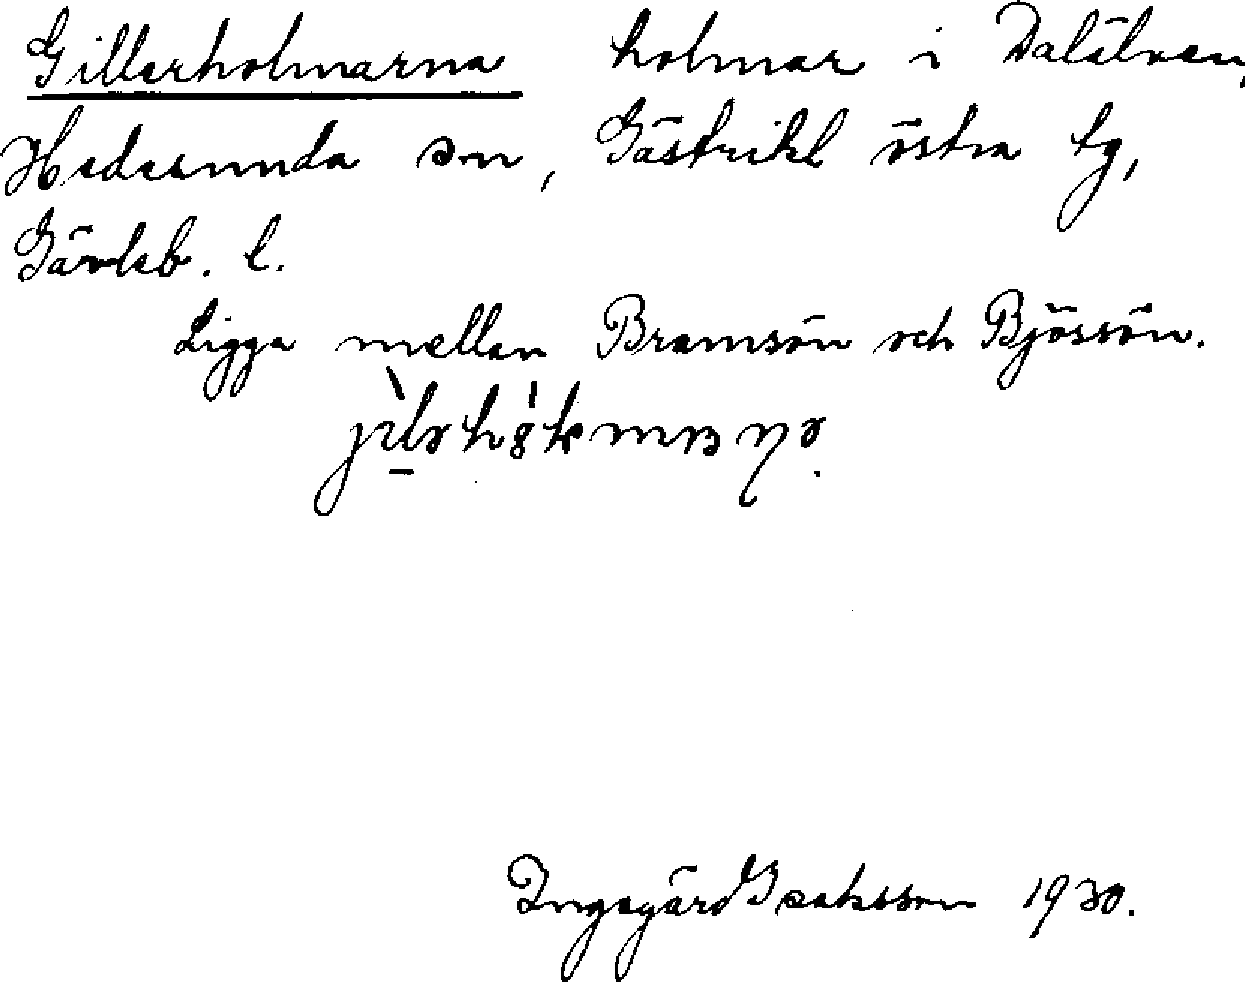 Gillerholmarna holmar i Dalälven,
Hedesunda sn, Gästrikl östra tg,
Gävleb. l.
Ligga mellan Bramsön och Bjössön.
Ingegärd Isaksson 1930.